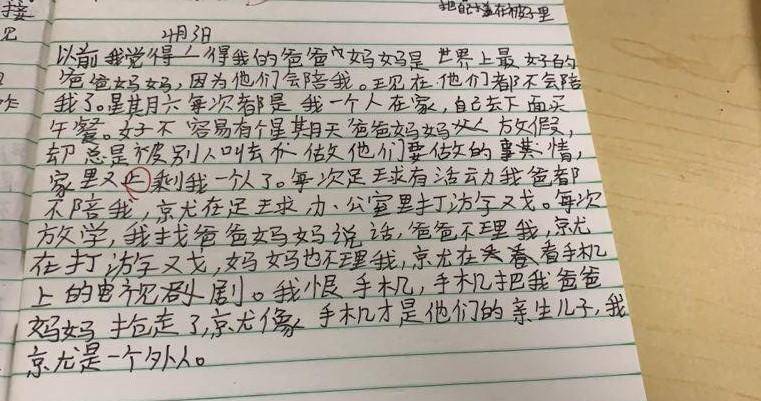 接
把自己藏在被子里
见
4月3日
以前我觉得 得我的爸爸妈妈是世界上最好的
爸爸妈妈,因为他们会陪我。现在他们都不会陪
我了。星期六每次都是我一个人在家,自己去下面买
午餐。好不容易有个星期天爸爸妈妈 放假,
却总是被别人叫去 做他们要做的事 情,
家里又只剩我一个人了。每次足球有活动我爸都
不陪我,京尤在足球办公室里打游戏。每次
放学,我找爸爸妈妈说话,爸爸不理我,京尤
在打游戏,妈妈也不理我,京尤在 看手机
上的电视 剧。我恨手机,手机把我爸爸
妈妈抢走了,京尤像手机才是他们的亲生儿子,我
京尤是一个外人。